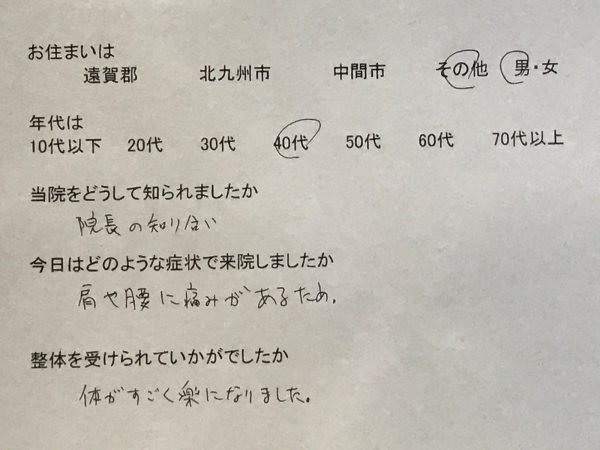 お住まいは
遠賀郡 北九州市 中間市 その他 男・女
年代は
10代以下 20代 30代 40代 50代 60代 70代以上
当院をどうして知られましたか
院長の知り合い
今日はどのような症状で来院しましたか
肩や腰に痛みがあるため。
整体を受けられていかがでしたか
体がすごく楽になりました。